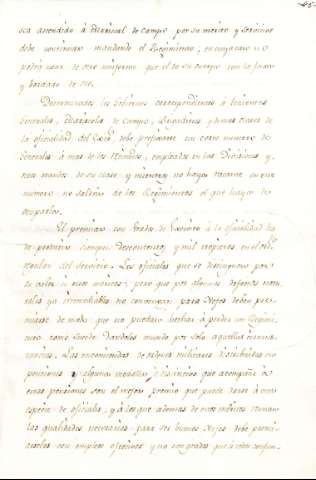 45.
sea ascendido á Mariscal de Campo por su mérito y servicios
debe continuar mandando el Regimiento, en cuyo caso no
podrá usar de otro uniforme que el de su cuerpo con la faxa
y bordado de
Determinados los Sueldos correspondientes á Tenientes
Generales, Mariscales de Campo, Brigadieres, y demas clases de
la oficialidad del debe prefixarse un corto numero de
Generales á mas de los empleados en las Divisiones y
otros mandos de su clase; y mientras no haya vacante en este
numero no saldrán de los Regimientos el que hayan de
ocuparlos.
El premiar con Grados de á la oficialidad ha
de producir siempre descontentos, y mil en el
del Servicio. Los oficiales que se distinguen por
su valor ú otros motivos; pero que por algunos defectos natu-
rales ya irremediables no convienen para Xefes deben pre-
miarse de modo que no puedan á perder un Regimi-
ento como sucede dandoles mando por solo aquellas circuns-
tancias. Las encomiendas de ordenes militares distribuidas en
pensiones y algunas medallas, ó distintivo que acompañe á
estas pensiones son el mejor premio que puede darse á esta
especie de oficiales, y á los que ademas de estos meritos tienen
las qualidades necesarias para ser buenos Xefes debe premi-
arselos con empleos efectivos y no con grados que á todos confun-